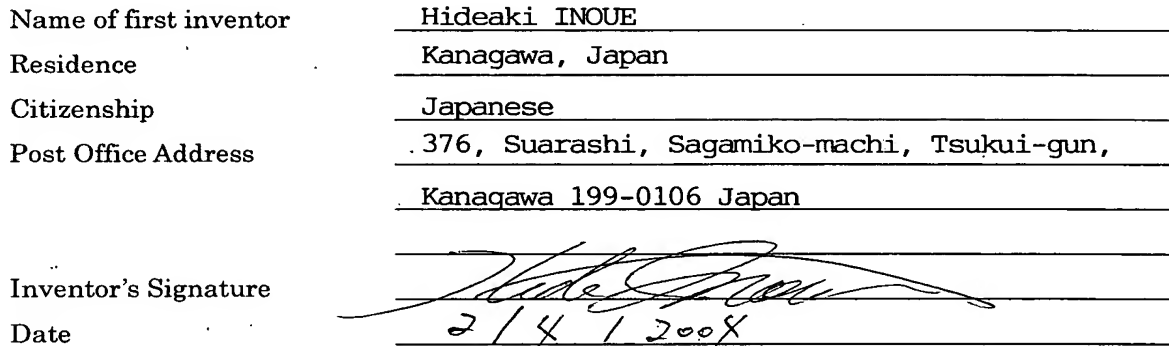 Name of first inventor Hideaki INOUE
Residence Kanagawa, Japan
Citizenship Japanese
Post Office Address 376, Suarashi, Sagamiko-machi, Tsukui-gun,
Kanagawa 199-0106 Japan
Inventor's Signature Hide Inoue
Date 2/4/2004